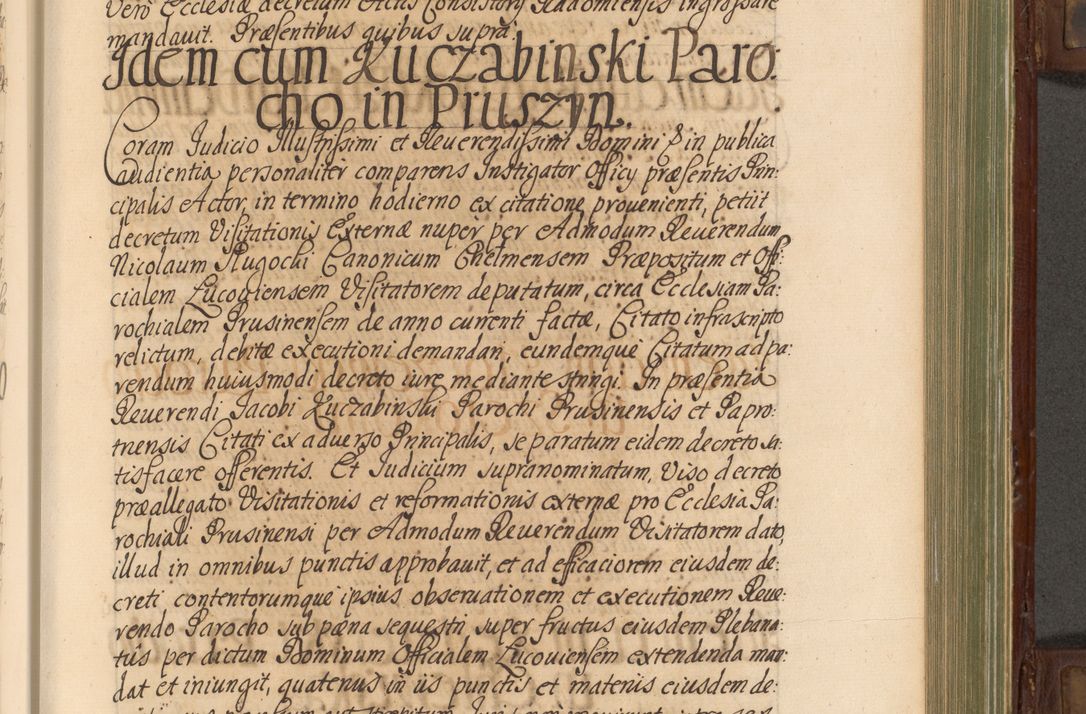 Vero Ecclesiæ decretum Actis Consistory Radomiensis ingrossare
mandauit. Præsentibus quibus supra.
Idem cum Kuczabinski Paro:
cho in Pruszyn.
Coram Iudicio Illustrissimi et Reuerendissimi Domini & in publica
audientia personaliter comparens Instigator Officy præsentis Prin:
cipalis Actor, in termino hodierno ex citatione prouenienti, petiit
decretum Visitationis Externæ nuper per Admodum Reuerendum
Nicolaum Alugocki Canonicum Chelmensem Præpositum et Offi:
cialem Lucouiensem Visitatorem deputatum, circa Ecclesiam Pa:
rochialem Prusinensem de anno currenti factæ, Citato infrascripto
relictum, debitæ executioni demandari, eundemque Citatum ad pa:
rendum huiusmodi decreto iure mediante stringi. In præsentia
Reuerendi Iacobi Kuczabinski Parochi Prusinensis et Papro:
tnensis Citati ex aduerso Principalis, se paratum eidem decreto sa:
tisfacere offerentis. Et Iudicium supranominatum, Viso decreto
præallegato Visitationis et reformationis externæ pro Ecclesia Pa:
rochiali Prusinensi per Admodum Reuerendum Visitatorem dato,
illud in omnibus punctis approbauit, et ad efficaciorem eiusdem de:
creti contentorumque ipsius obseruationem et executionem Reue:
rendo Parocho sub pæna sequestri super fructus eiusdem Plebana:
tus per dictum Dominum Officialem Lucouiensem extendenda man:
dat et iniungit, quatenus in iis punctis et materiis eiusdem de: